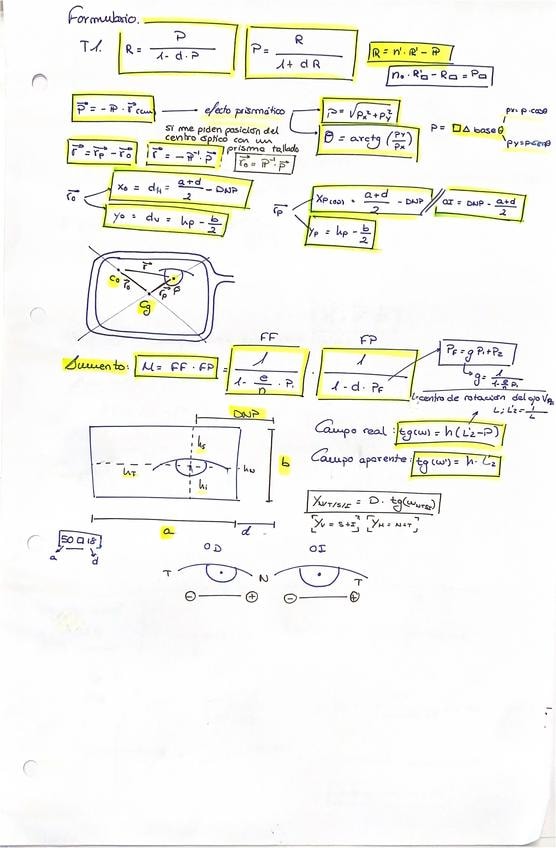 Formulario.
T1. R = P / 1 - d · P
P = R / 1 + d R
R = n' · R' - P
n₀ · R'□ - R□ = P□
P⃗ = - P · r⃗ cm → efecto prismático
P = √Px² + Py²
θ = arctg (Py / Px)
P = □ Δ base θ
px = p · cosθ
py = p · senθ
si me piden posición del centro óptico con un prisma tallado
r⃗ = r⃗p - r⃗₀
r⃗ = - P⁻¹ · P⃗
r⃗₀ = P⁻¹ · P⃗
r⃗₀
x₀ = dH = a+d / 2 - DNP
y₀ = dv = hp - b / 2
r⃗p
Xp(OD) = a+d / 2 - DNP // OI = DNP - a+d / 2
yp = hp - b / 2
C₀ r⃗₀ r⃗ r⃗p P
Cg
FF FP
Aumento: M = FF · FP = 1 / 1 - e/n · P₁ · 1 / 1 - d · PF
PF = g P₁ + P₂
g = 1 / 1 - e/n P₁
centro de rotación del ojo
L'₂ = 1 / L
DNP
Campo real: tg(w) = h (L'₂ - P)
Campo aparente: tg(w') = h · L'₂
hs
hT hN b
hi
YN/T/S/I = D · tg(wNTSI)
[Yv = S + I] [YH = N + T]
a d
50 □ 18
a d
OD OI
T N T
- + - +